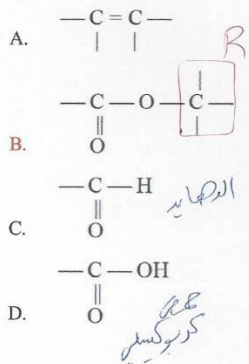 A. — C = C —
R
B. — C — O — C —
O
C. — C — H
O
الدهايد
D. — C — OH
O
حمض
كربوكسيلي